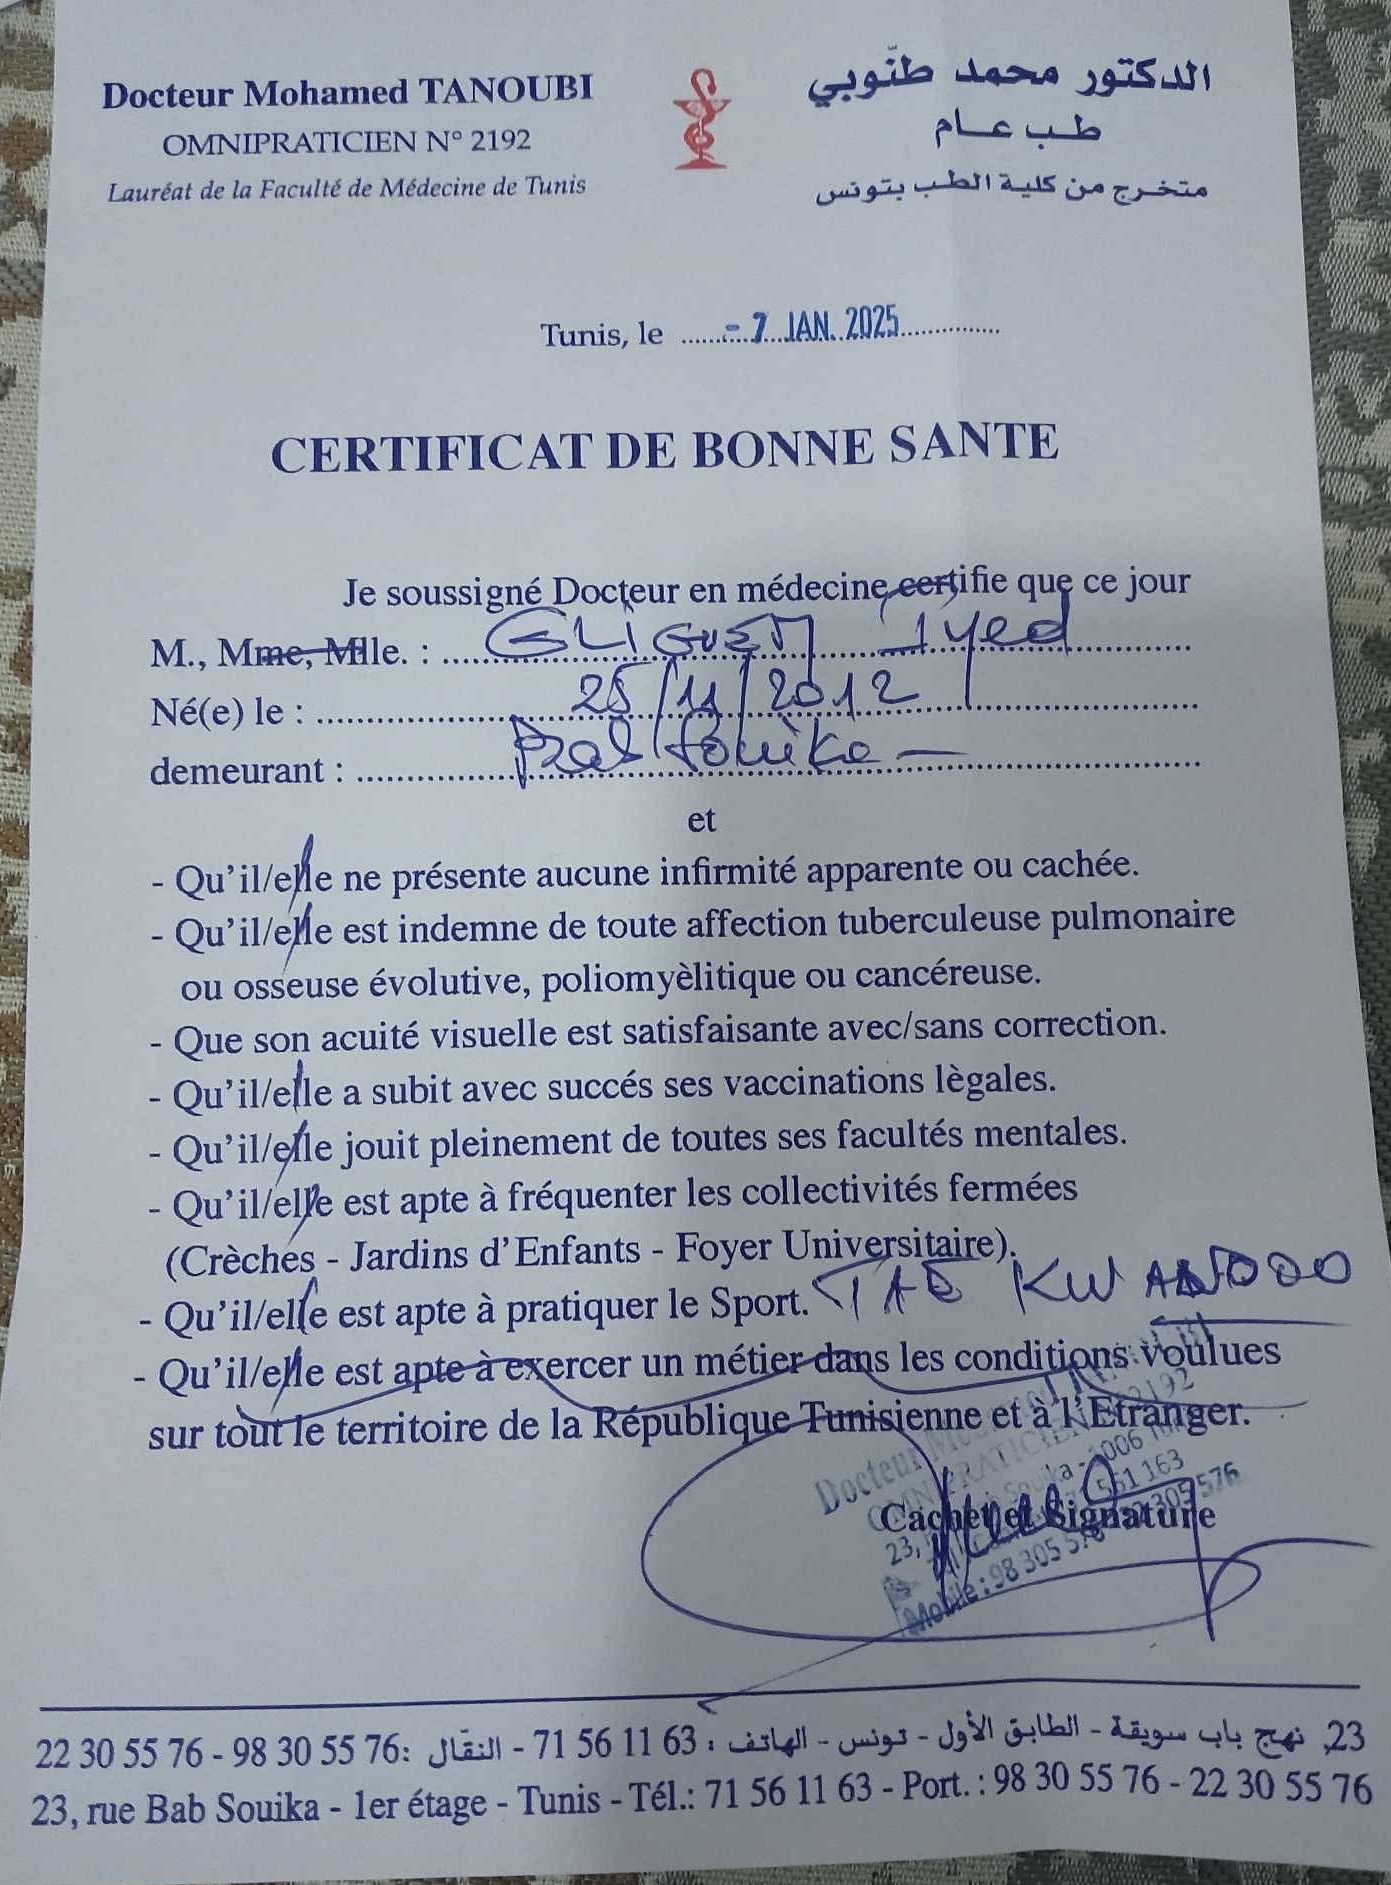 Docteur Mohamed TANOUBI
OMNIPRATICIEN N° 2192
Lauréat de la Faculté de Médecine de Tunis
الدكتور محمد طنّوبي
طب عام
متخرج من كلية الطب بتونس
Tunis, le - 7 JAN. 2025
CERTIFICAT DE BONNE SANTE
Je soussigné Docteur en médecine certifie que ce jour
M., Mme, Mlle. : GLIGUEM Iyed
Né(e) le : 25/11/2012
demeurant :
et
- Qu'il/elle ne présente aucune infirmité apparente ou cachée.
- Qu'il/elle est indemne de toute affection tuberculeuse pulmonaire
ou osseuse évolutive, poliomyèlitique ou cancéreuse.
- Que son acuité visuelle est satisfaisante avec/sans correction.
- Qu'il/elle a subit avec succés ses vaccinations lègales.
- Qu'il/elle jouit pleinement de toutes ses facultés mentales.
- Qu'il/elle est apte à fréquenter les collectivités fermées
(Crèches - Jardins d'Enfants - Foyer Universitaire).
- Qu'il/elle est apte à pratiquer le Sport. TAE KWANDOO
- Qu'il/elle est apte à exercer un métier dans les conditions voulues
sur tout le territoire de la République Tunisienne et à l'Etranger.
Docteur
OMNIPRATICIEN 2192
23, Souika - 1006
561 163
Cachet et Signature
Mobile : 98 305 576 305 576
23, نهج باب سويقة - الطابق الأول - تونس - الهاتف : 71 56 11 63 - النقال : 98 30 55 76 - 22 30 55 76
23, rue Bab Souika - 1er étage - Tunis - Tél.: 71 56 11 63 - Port. : 98 30 55 76 - 22 30 55 76